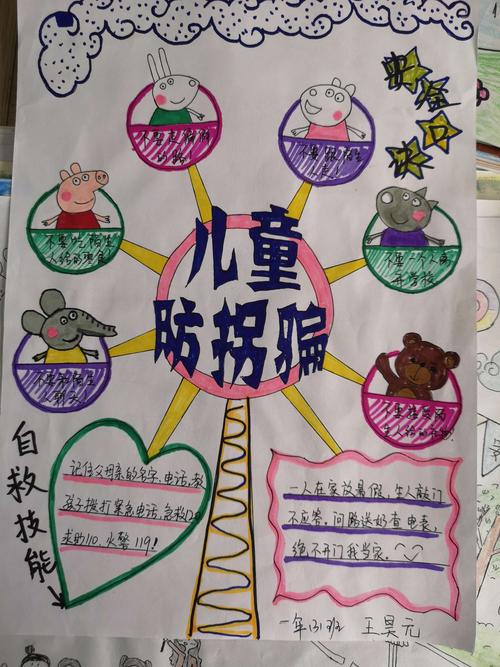 安全口
诀
不要走偏僻
的路
不要跟陌生
人走!
不要吃陌生
人给的零食
不要一个人离
开学校
儿童
防拐骗
不要和陌生
人聊天!
不要接受陌
生人给的礼物!
自救技能
记住父母亲的名字、电话,教
孩子拨打紧急电话,急救120
求助110,火警119!
一人在家放暑假,生人敲门
不应答,问路送奶查电表,
绝不开门我当家。
一年(3)班 王昊元